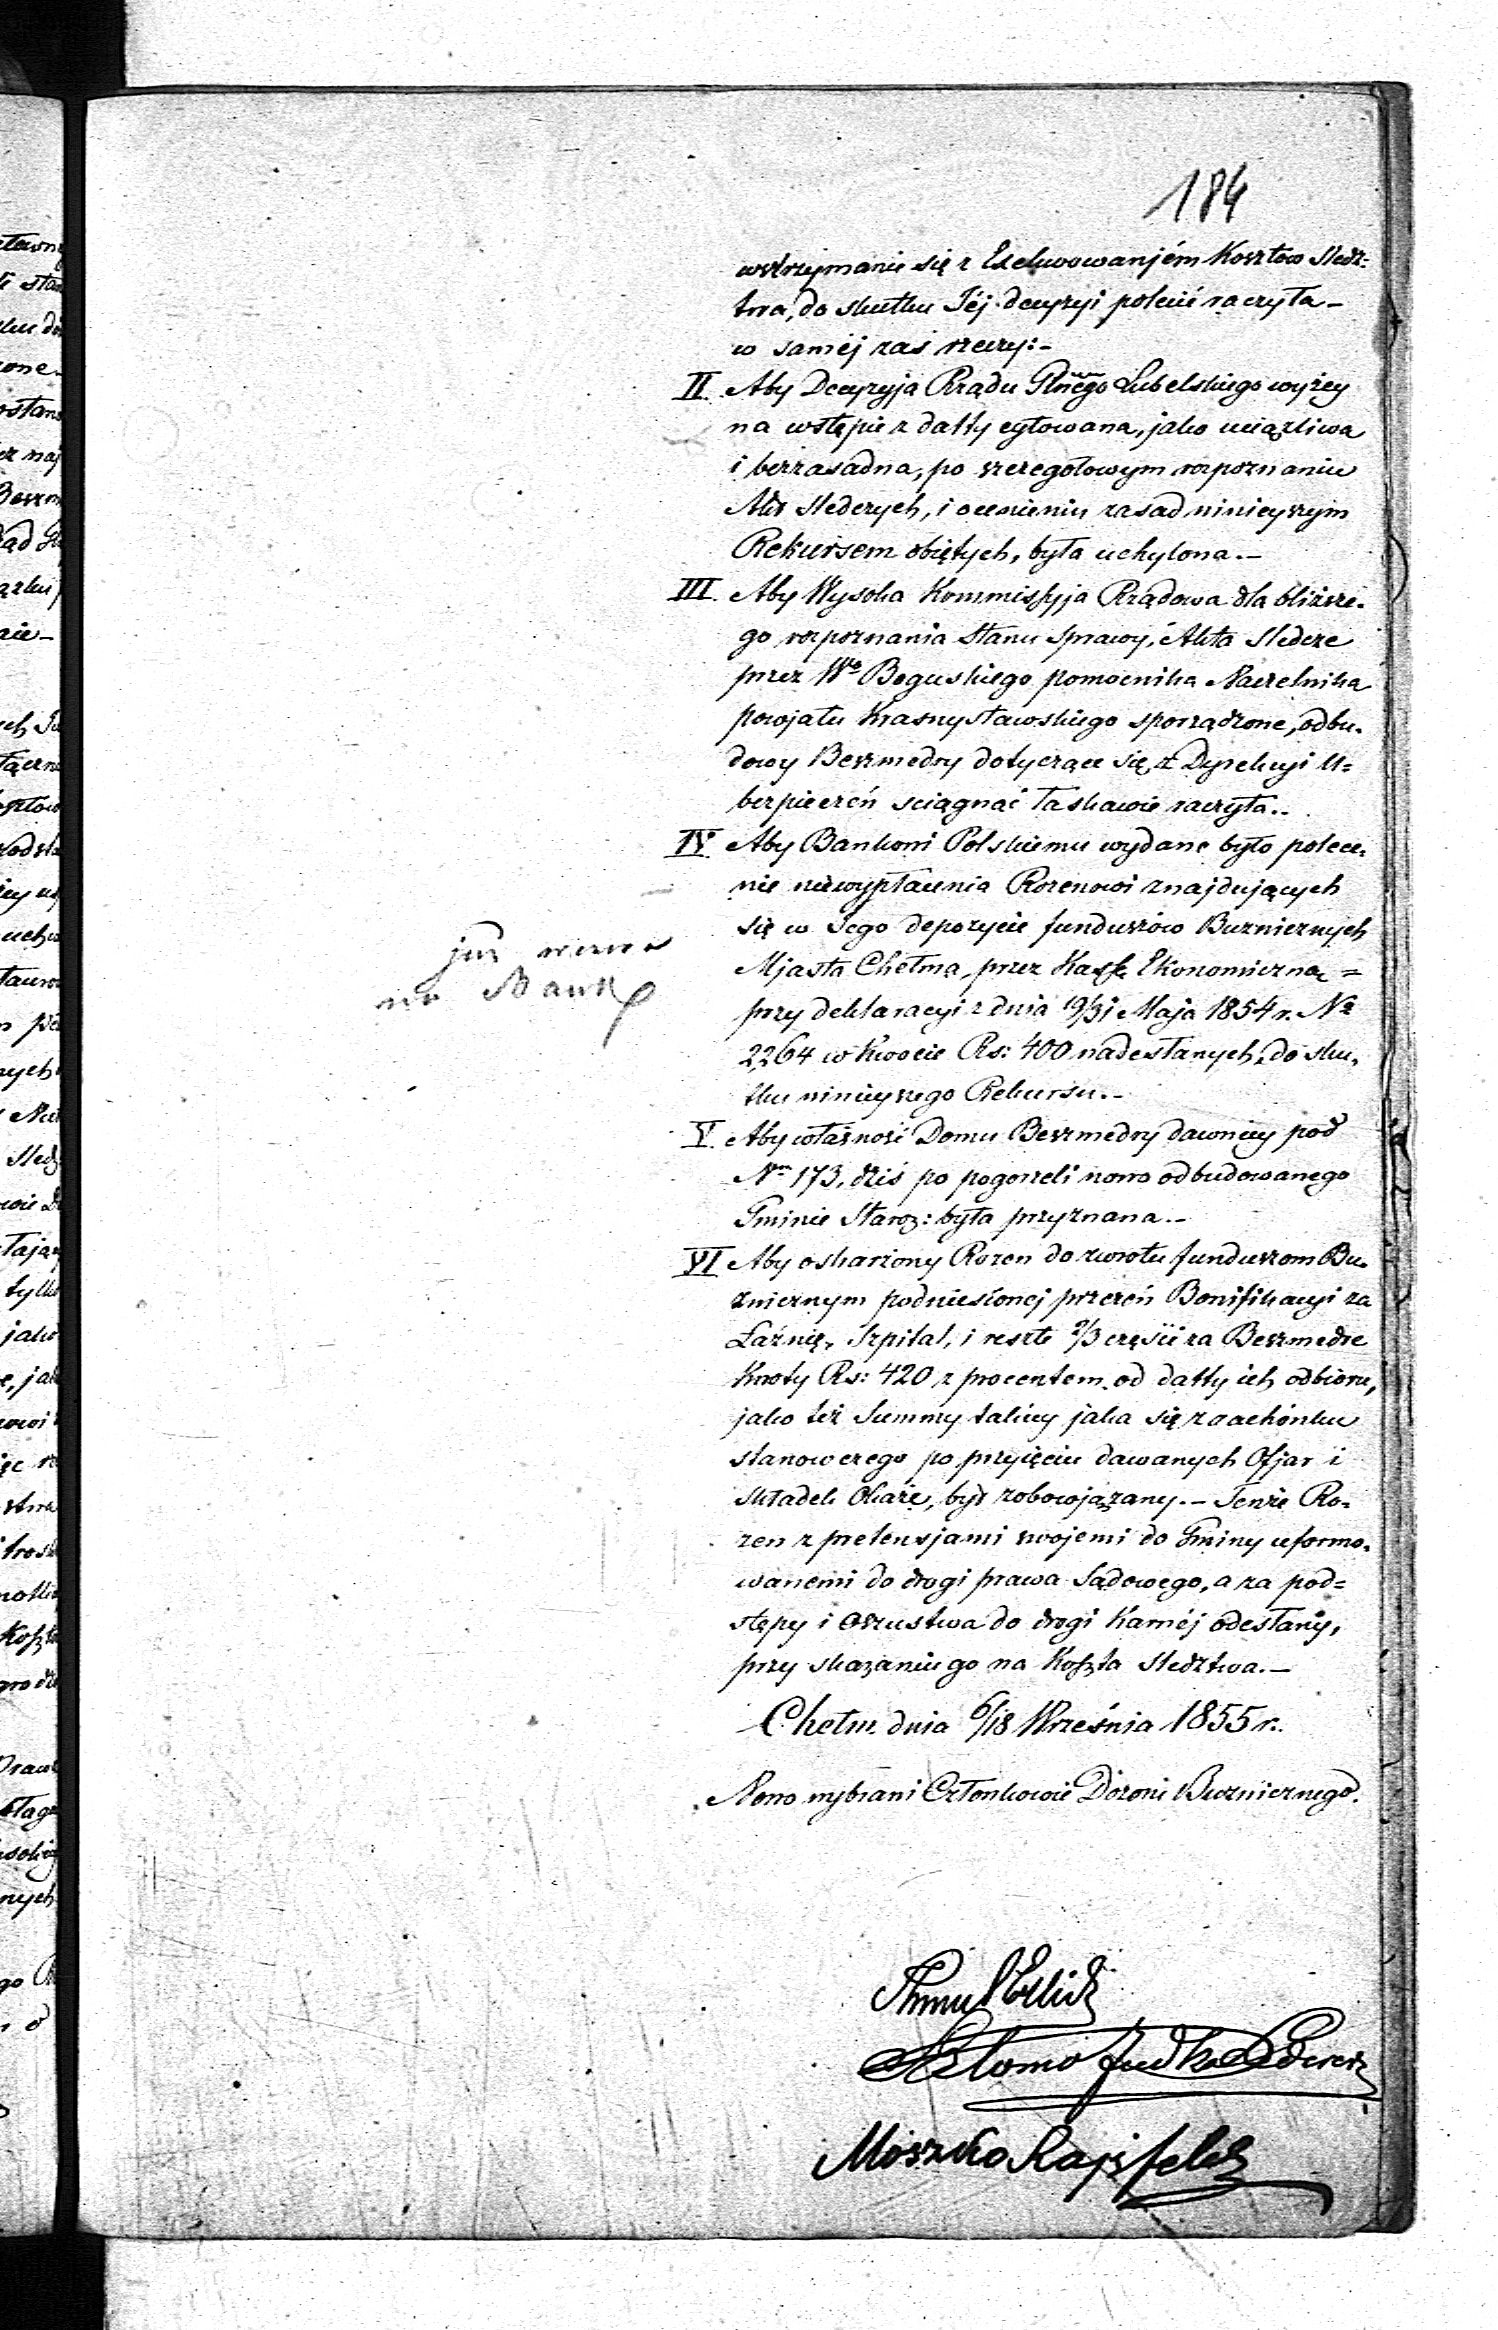 184
wstrzymanie się z Exekwowaniém Kosztow Sledz=
twa, do skutku Téj decyzyi polecić raczyła —
w saméj zaś rzeczy: —
II. Aby Decyzyja Rządu Glnego Lubelskiego wyżey
na wstępie z datty cytowana, jako uciążliwa
i bezzasadna, po szczegołowym rozpoznaniu
Akt Sledczych, i ocenieniu zasad ninieyszym
Rekursem obiętych, była uchylona. —
III. Aby Wysoka Kommissyja Rządowa dla bliższe=
go rozpoznania Stanu Sprawy, Akta Sledcze
przez Wo Boguskiego pomocnika Naczelnika
powjatu Krasnystawskiego sporządzone, odbu=
dowy Beszmedry dotyczące się, z Dyrekcyi U=
bezpieczeń sciągnąć łaskawie raczyła. —
IV. Aby Bankowi Polskiemu wydane było polece=
nie niewypłacenia Rozenowi znajdujących
się w Jego depozycie funduszów Buznicznych
Mjasta Chełma, przez Kassę Ekonomiczną =
przy deklaracyi z dnia 19/31 Maja 1854 r. No
2,264 w kwocie Rs: 400 nadesłanych, do sku=
tku ninieyszego Rekursu. —
już
na Bank
V. Aby własność Domu Beszmedry dawniey pod
Nrm 173, dziś po pogorzeli nowo odbudowanego
Gminie Staroz: była przyznana. —
VI. Aby oskarżony Rozen do zwrotu funduszom Bu=
zniczym podniesionej przezeń Bonifikacyi za
Łaźnię, Szpital, i reszte 2/3 części za Beszmedre
Kwoty Rs: 420 z procentem od datty ich odbioru,
jako też Summy takiey jaka się z rachónku
stanowczego po przyięciu dawanych Ofjar i
składek Okaże, był zobowjązany. — Tenże Ro=
zen z pretensjami swojemi do Gminy uformo=
wanemi do drogi prawa Sądowego, a za pod=
stępy i oszustwa do drogi Karnéj odesłany,
przy skazaniu go na Koszta Sledztwa. —
Chełm dnia 6/18 Września 1855 r.
Nowo wybrani Członkowie Dozoru Buzniczego.
Szmul
Szlomo Judka
Moszko Rajsfeld